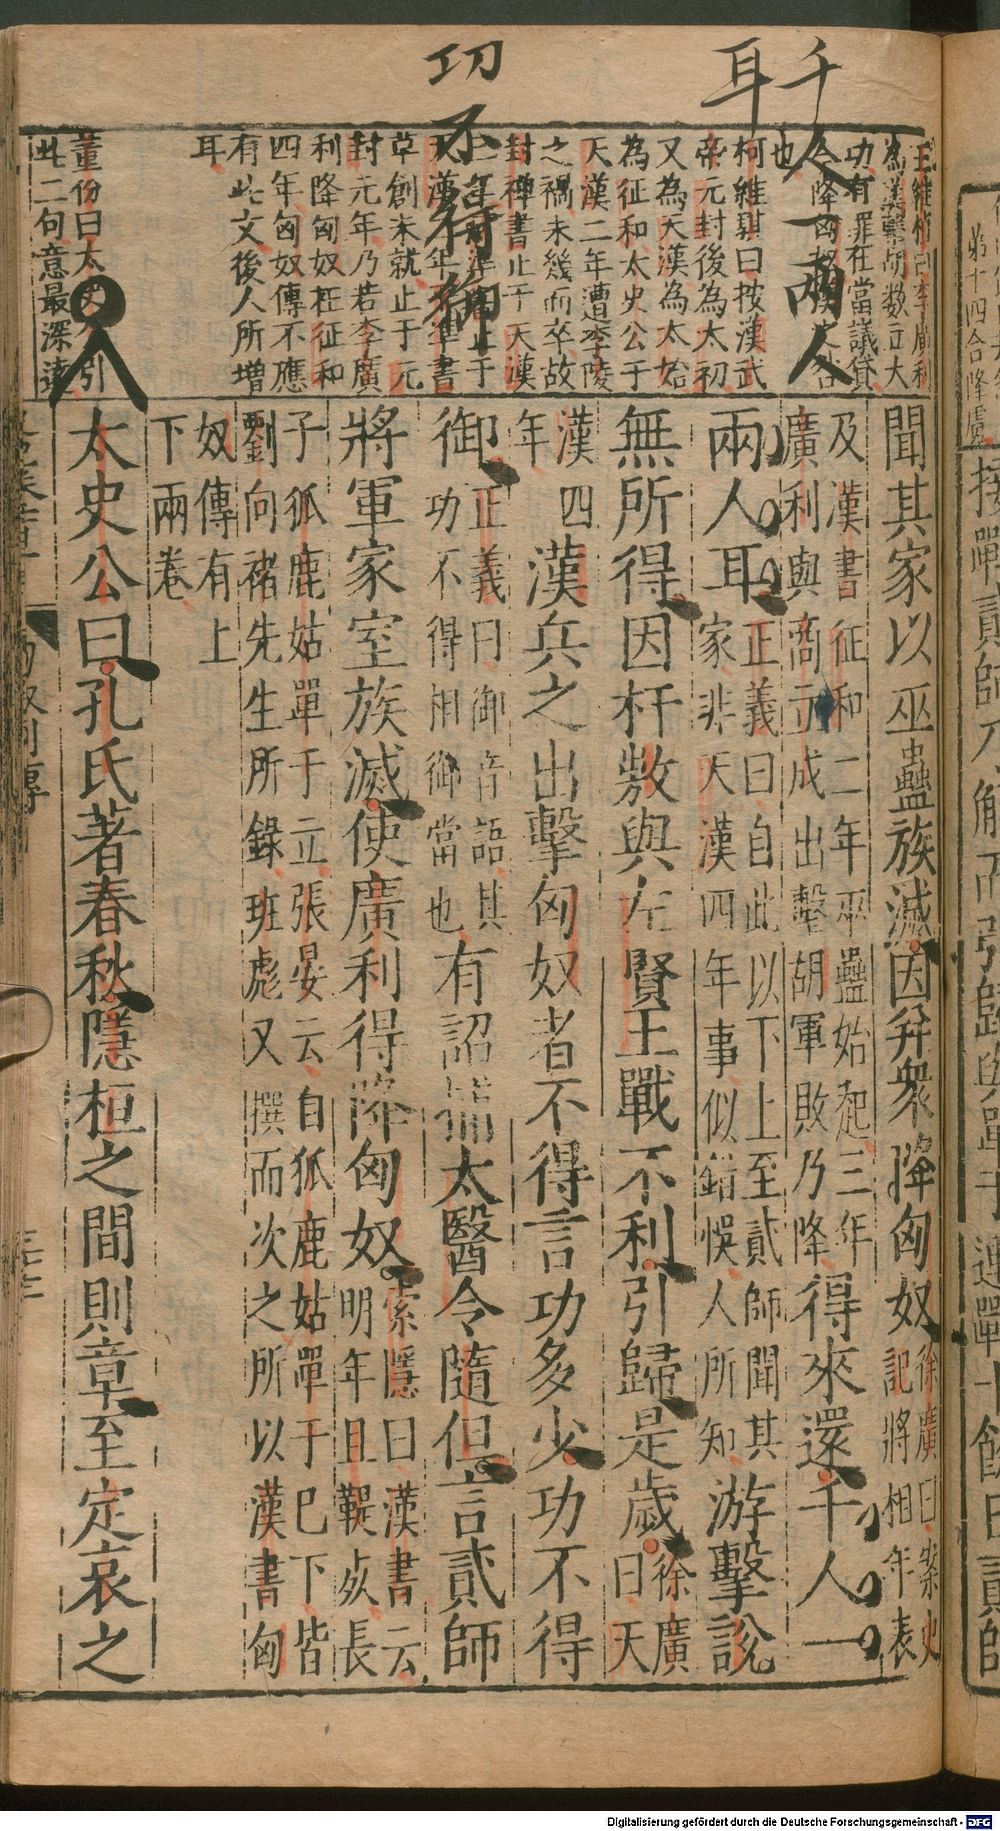 千人一兩人
耳
功不得御
王維楨曰李廣利
為漢擊胡數立大
功有罪在當議貸
今降匈奴漢史咎
也
柯維騏曰按漢武
帝元封後為太初
又為天漢為太始
為征和太史公于
天漢二年遭李陵
之禍未幾而卒故
封禪書止于天漢
三年平準書止于
天漢年平準書
草創未就止于元
封元年乃若李廣
利降匈奴在征和
四年匈奴傳不應
有此文後人所增
耳
董份曰太史公引
此二句意最深遠
聞其家以巫蠱族滅因并衆降匈奴徐廣曰案史
記將相年表
及漢書征和二年巫蠱始起三年
廣利與商丘成出擊胡軍敗乃降得來還千人一
兩人耳正義曰自此以下上至貳師聞其
家非天漢四年事似錯悞人所知游擊說
無所得因杅敖與左賢王戰不利引歸是歲徐廣
曰天
漢四
年漢兵之出擊匈奴者不得言功多少功不得
御正義曰御音語其
功不得相御當也有詔捕太醫令隨但言貳師
將軍家室族滅使廣利得降匈奴索隱曰漢書云
明年且鞮矦長
子狐鹿姑單于立張晏云自狐鹿姑單于已下皆
劉向褚先生所錄班彪又撰而次之所以漢書匈
奴傳有上
下兩卷
太史公曰孔氏著春秋隱桓之間則章至定哀之
匈奴列傳
Digitalisierung gefördert durch die Deutsche Forschungsgemeinschaft - DFG